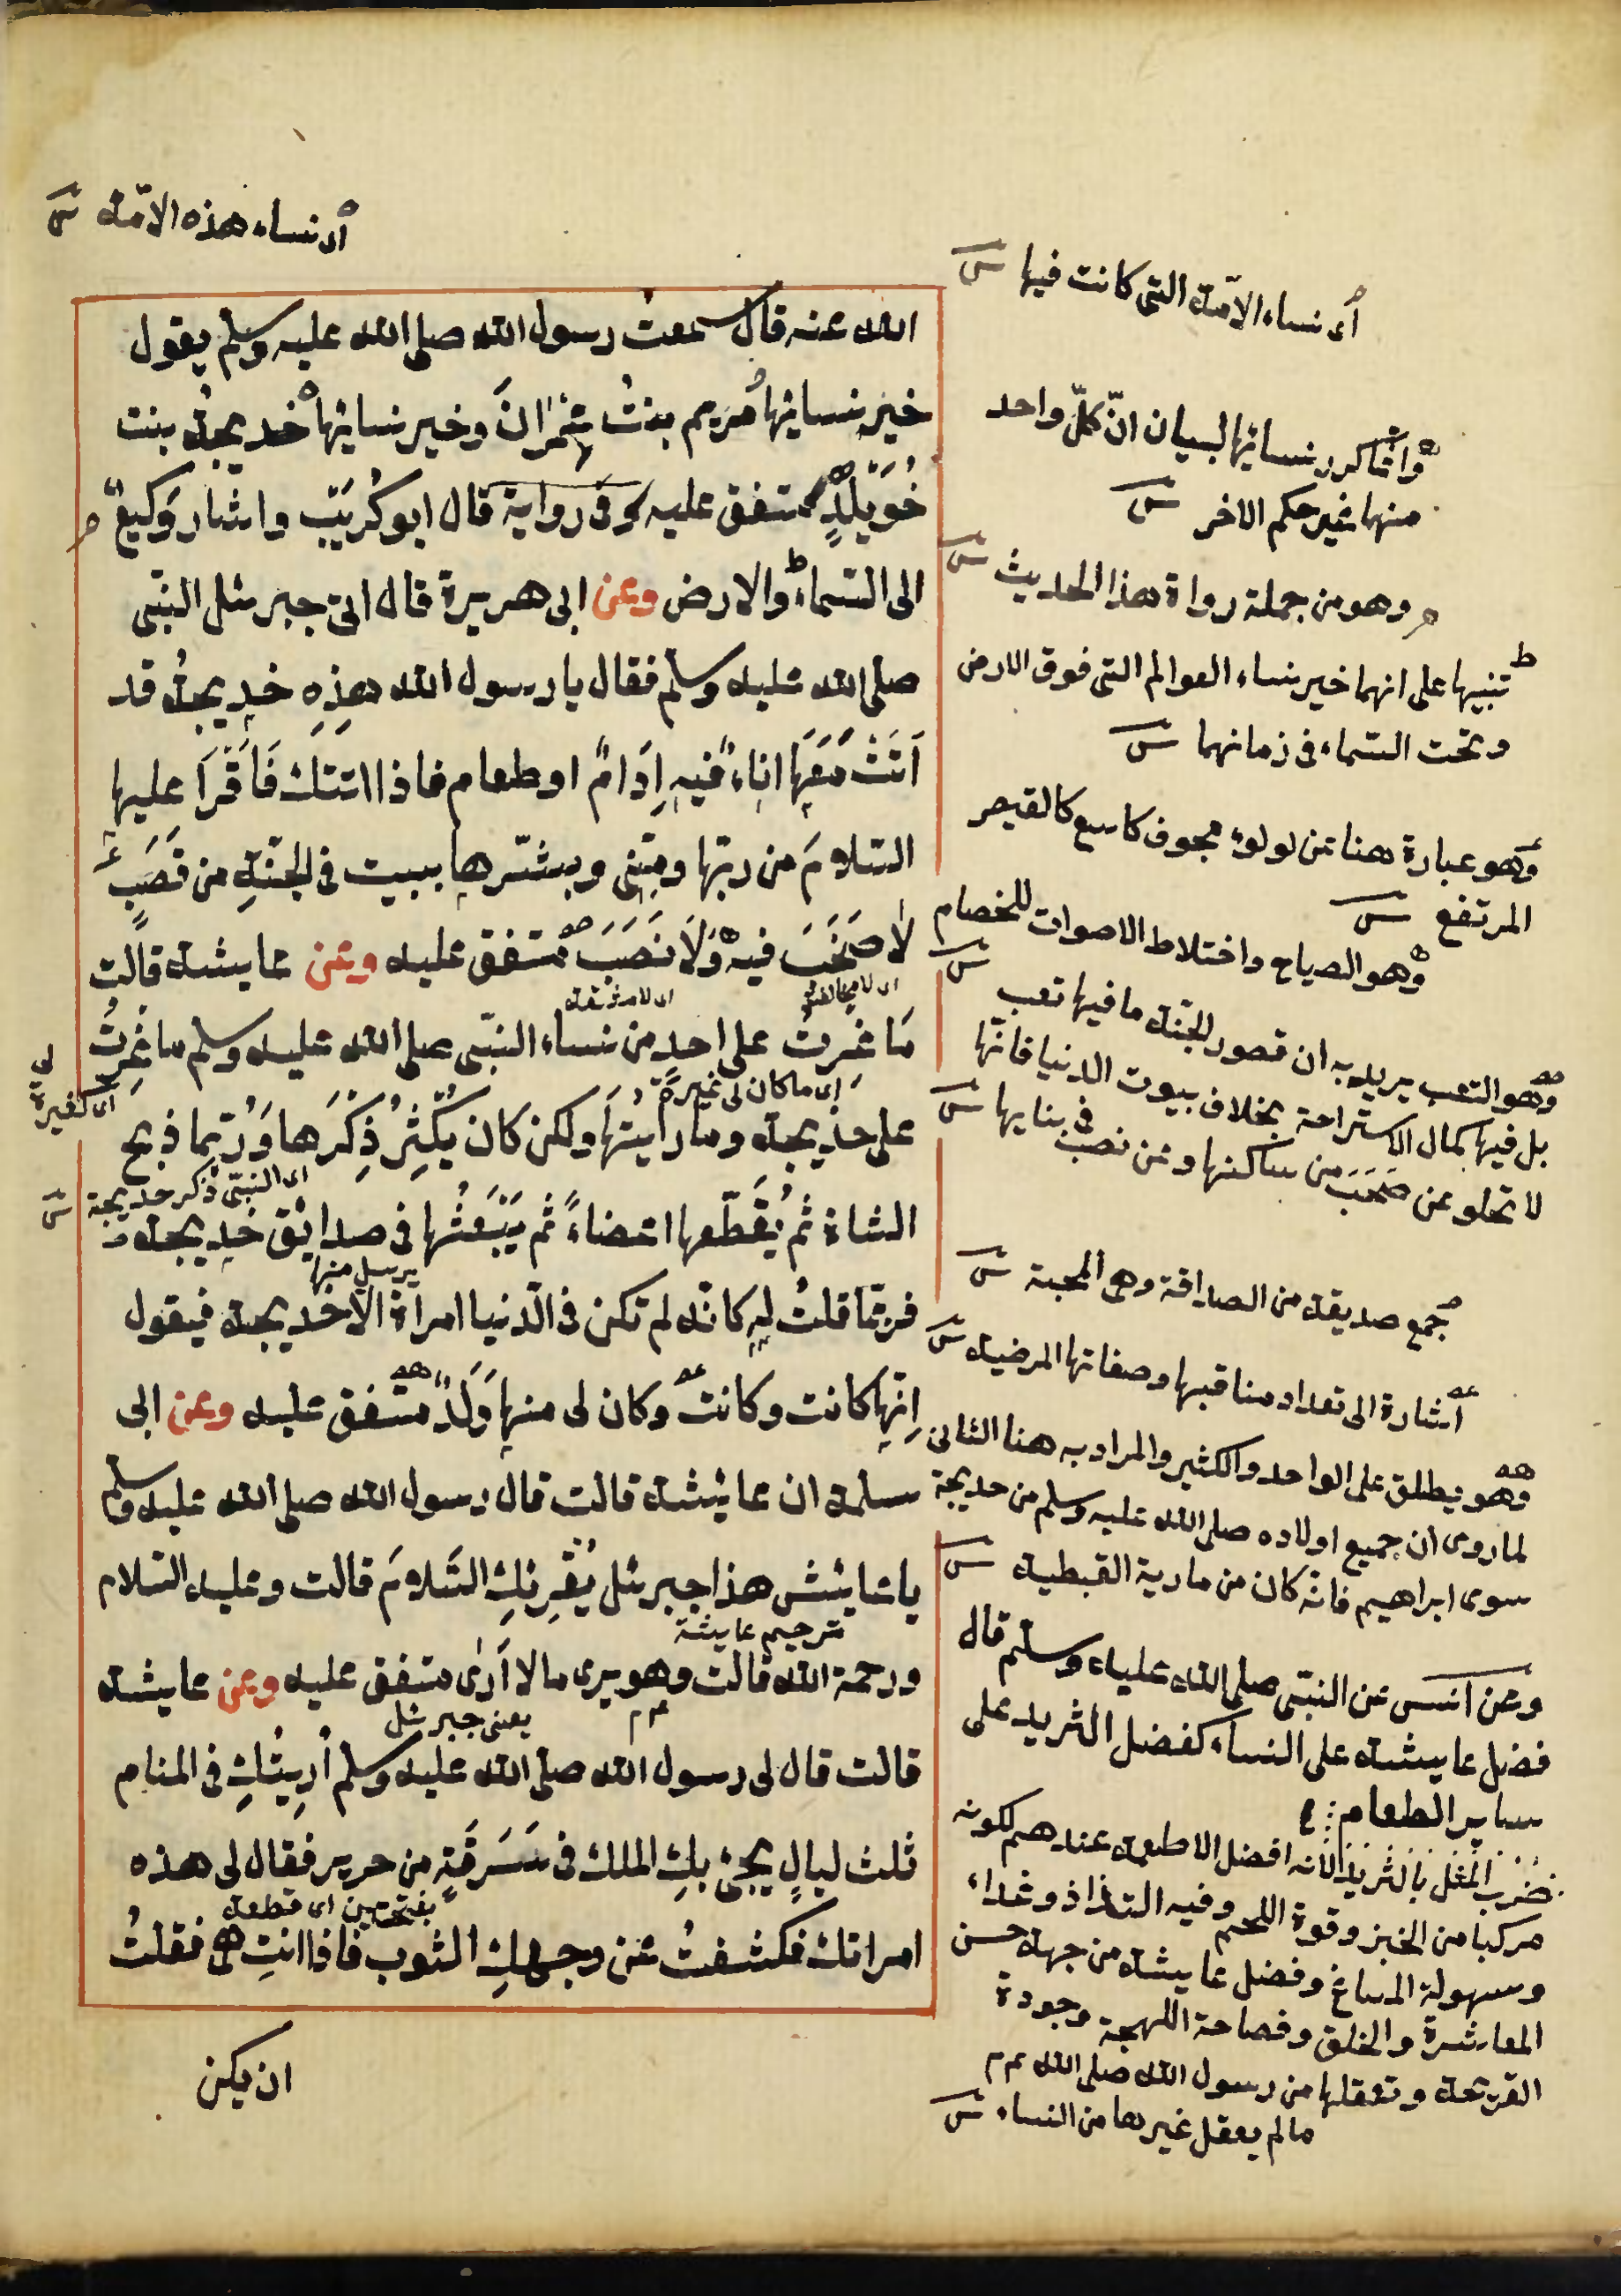 اى نساء هذه الامّة ش
اى نساء الامّة التى كانت فيها ش
الله عنه قال سمعت رسول الله صلى الله عليه وسلم يقول
خير نسائها مريم بنتُ عِمْرانَ وخير نسائها خديجة بنت
خُوَيْلِدٍ متفق عليه وفى رواية قال ابو كُرَيْبٍ واشار وَكيعٌ
الى السّماء والارض وعن ابى هريرة قال اتى جبرئل النبّى
صلى الله عليه وسلم فقال يا رسول الله هذِهِ خديجةُ قد
اَتَتْ مَعَهَا اناءٌ فيهِ اِدَامٌ او طعام فاذا اتتك فَاقْرَأ عليها
السّلامَ من ربّها ومِنّى وبشّرها ببيت فى الجنّةِ من قَصَبٍ
لا صَخَبَ فيه وَلَا نَصَبَ متفق عليه وعن عايشة قالت
اى لا مخالطة
اى لا مشقة
مَا غِرتُ على احدٍ من نساء النبّى صلى الله عليه وسلم ما غِرتُ
اى ما كان لى غيرة
اى كغيرة
لى
على خديجة وما رايتها ولكن كان يُكْثِرُ ذِكْرَها وَرُبّما ذبح
اى النبىّ ذكر خديجة ش
الشاة ثم يُقَطّعها اعضاءً ثم يَبْعَثُها فى صدائق خديجة
يرسل منها
فربّما قلتُ له كانّه لم تكن فى الدّنيا امراة الّا خديجة فيقول
اِنّها كانت وكانت وكان لى منها وَلَدٌ متفق عليه وعن ابى
سلمة ان عائشة قالت قال رسول الله صلى الله عليه وسلم
يا عائش هذا جبرئل يُقْرِئكِ السّلامَ قالت وعليه السّلام
ترجيم عايشة
ورحمة الله قالت وهو يرى ما لا اَرٰى متفق عليه وعن عايشة
عم
يعنى جبرئل
قالت قال لى رسول الله صلى الله عليه وسلم اُريتُكِ فى المنام
ثلث ليالٍ يجئ بكِ الملك فى سَرَقَةٍ من حرير فقال لى هذه
بفتحتين اى قطعة
امراتك فكشفتُ عن وجهكِ الثوب فاذا انتِ هى فقلتُ
ان يكن
وانّما كرر نسائها لبيان انّ كلّ واحد
منهما غير حكم الاخر ش
وهو من جملة رواة هذا الحديث ش
تنبيها على انهما خير نساء العوالم التى فوق الارض
وتحت السّماء فى زمانهما ش
وهو عبارة هنا عن لولوء مجوف كاسع كالقيصر
المرتفع ش
وهو الصياح واختلاط الاصوات للخصام ش
وهو التعب يريد به ان قصور الجنّة ما فيها تعب
بل فيها كمال الاستراحة بخلاف بيوت الدنيا فانّها
لا تخلو عن صَخَبَ من ساكنها وعن نصب فى بنايها ش
جمع صديقة من الصداقة وهى المحبة ش
اشارة الى تعداد مناقبها وصفاتها المرضية ش
وهو يطلق على الواحد والكثير والمراد به هنا الثانى
لما روى ان جميع اولاده صلى الله عليه وسلم من خديجة
سوى ابراهيم فانّه كان من مارية القبطية ش
وعن انس عن النبّى صلى الله عليه وسلم قال
فضل عايشة على النساء كفضل الثريد على
ساير الطعام
ضرب المثل بالثريد لانّه افضل الاطعمة عندهم لكونه
مركبا من الخبز وقوة اللحم وفيه التذاذ وغداء
وسهولة المساغ وفضل عايشة من جهة حسن
المعاشرة والخلق وفصاحة اللهجة وجودة
القريحة وتعقلها من رسول الله صلى الله عم
ما لم يعقل غيرها من النساء ش